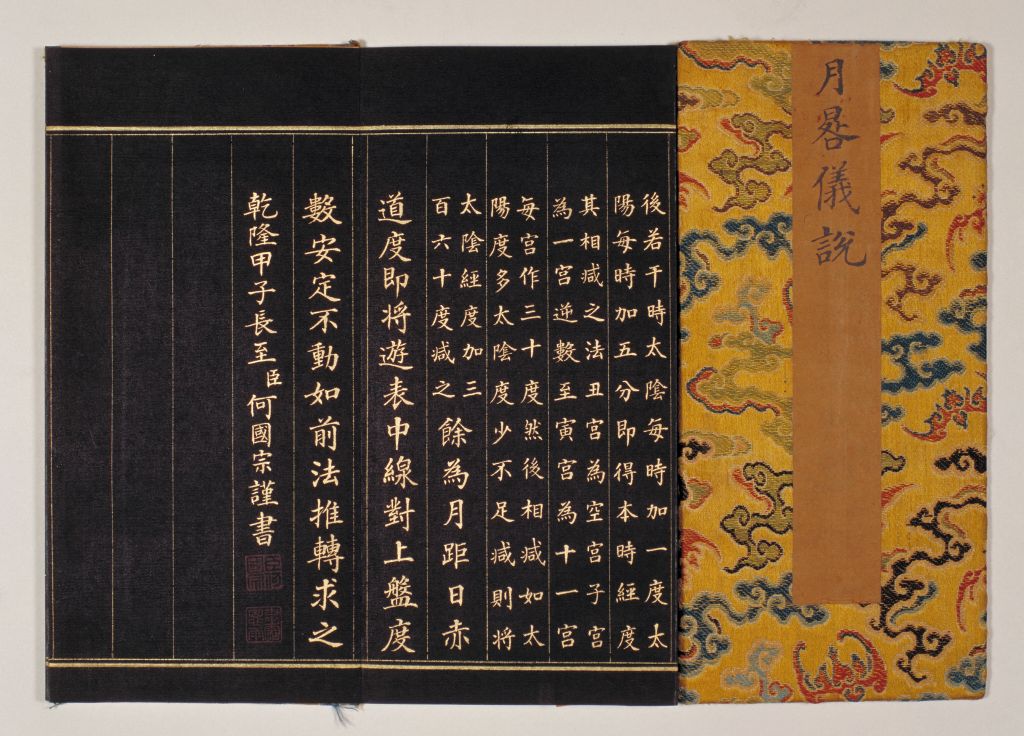 月晷儀說
後若干時太陰每時加一度太
陽每時加五分即得本時經度
其相減之法丑宮為空宮子宮
為一宮逆數至寅宮為十一宮
每宮作三十度然後相減如太
陽度多太陰度少不足減則將
太陰經度加三
百六十度減之
餘為月距日赤
道度即將遊表中線對上盤度
數安定不動如前法推轉求之
乾隆甲子長至臣何國宗謹書